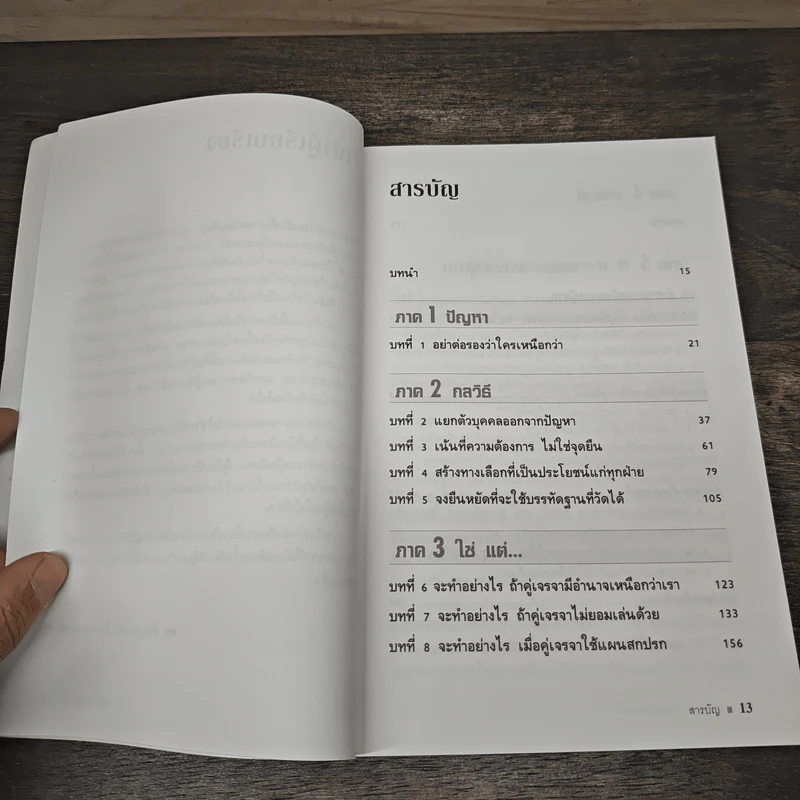 สารบัญ
บทนำ 15
ภาค 1 ปัญหา
บทที่ 1 อย่าต่อรองว่าใครเหนือกว่า 21
ภาค 2 กลวิธี
บทที่ 2 แยกตัวบุคคลออกจากปัญหา 37
บทที่ 3 เน้นที่ความต้องการ ไม่ใช่จุดยืน 61
บทที่ 4 สร้างทางเลือกที่เป็นประโยชน์แก่ทุกฝ่าย 79
บทที่ 5 จงยืนหยัดที่จะใช้บรรทัดฐานที่วัดได้ 105
ภาค 3 ใช่ แต่...
บทที่ 6 จะทำอย่างไร ถ้าคู่เจรจามีอำนาจเหนือกว่าเรา 123
บทที่ 7 จะทำอย่างไร ถ้าคู่เจรจาไม่ยอมเล่นด้วย 133
บทที่ 8 จะทำอย่างไร เมื่อคู่เจรจาใช้แผนสกปรก 156
สารบัญ ■ 13